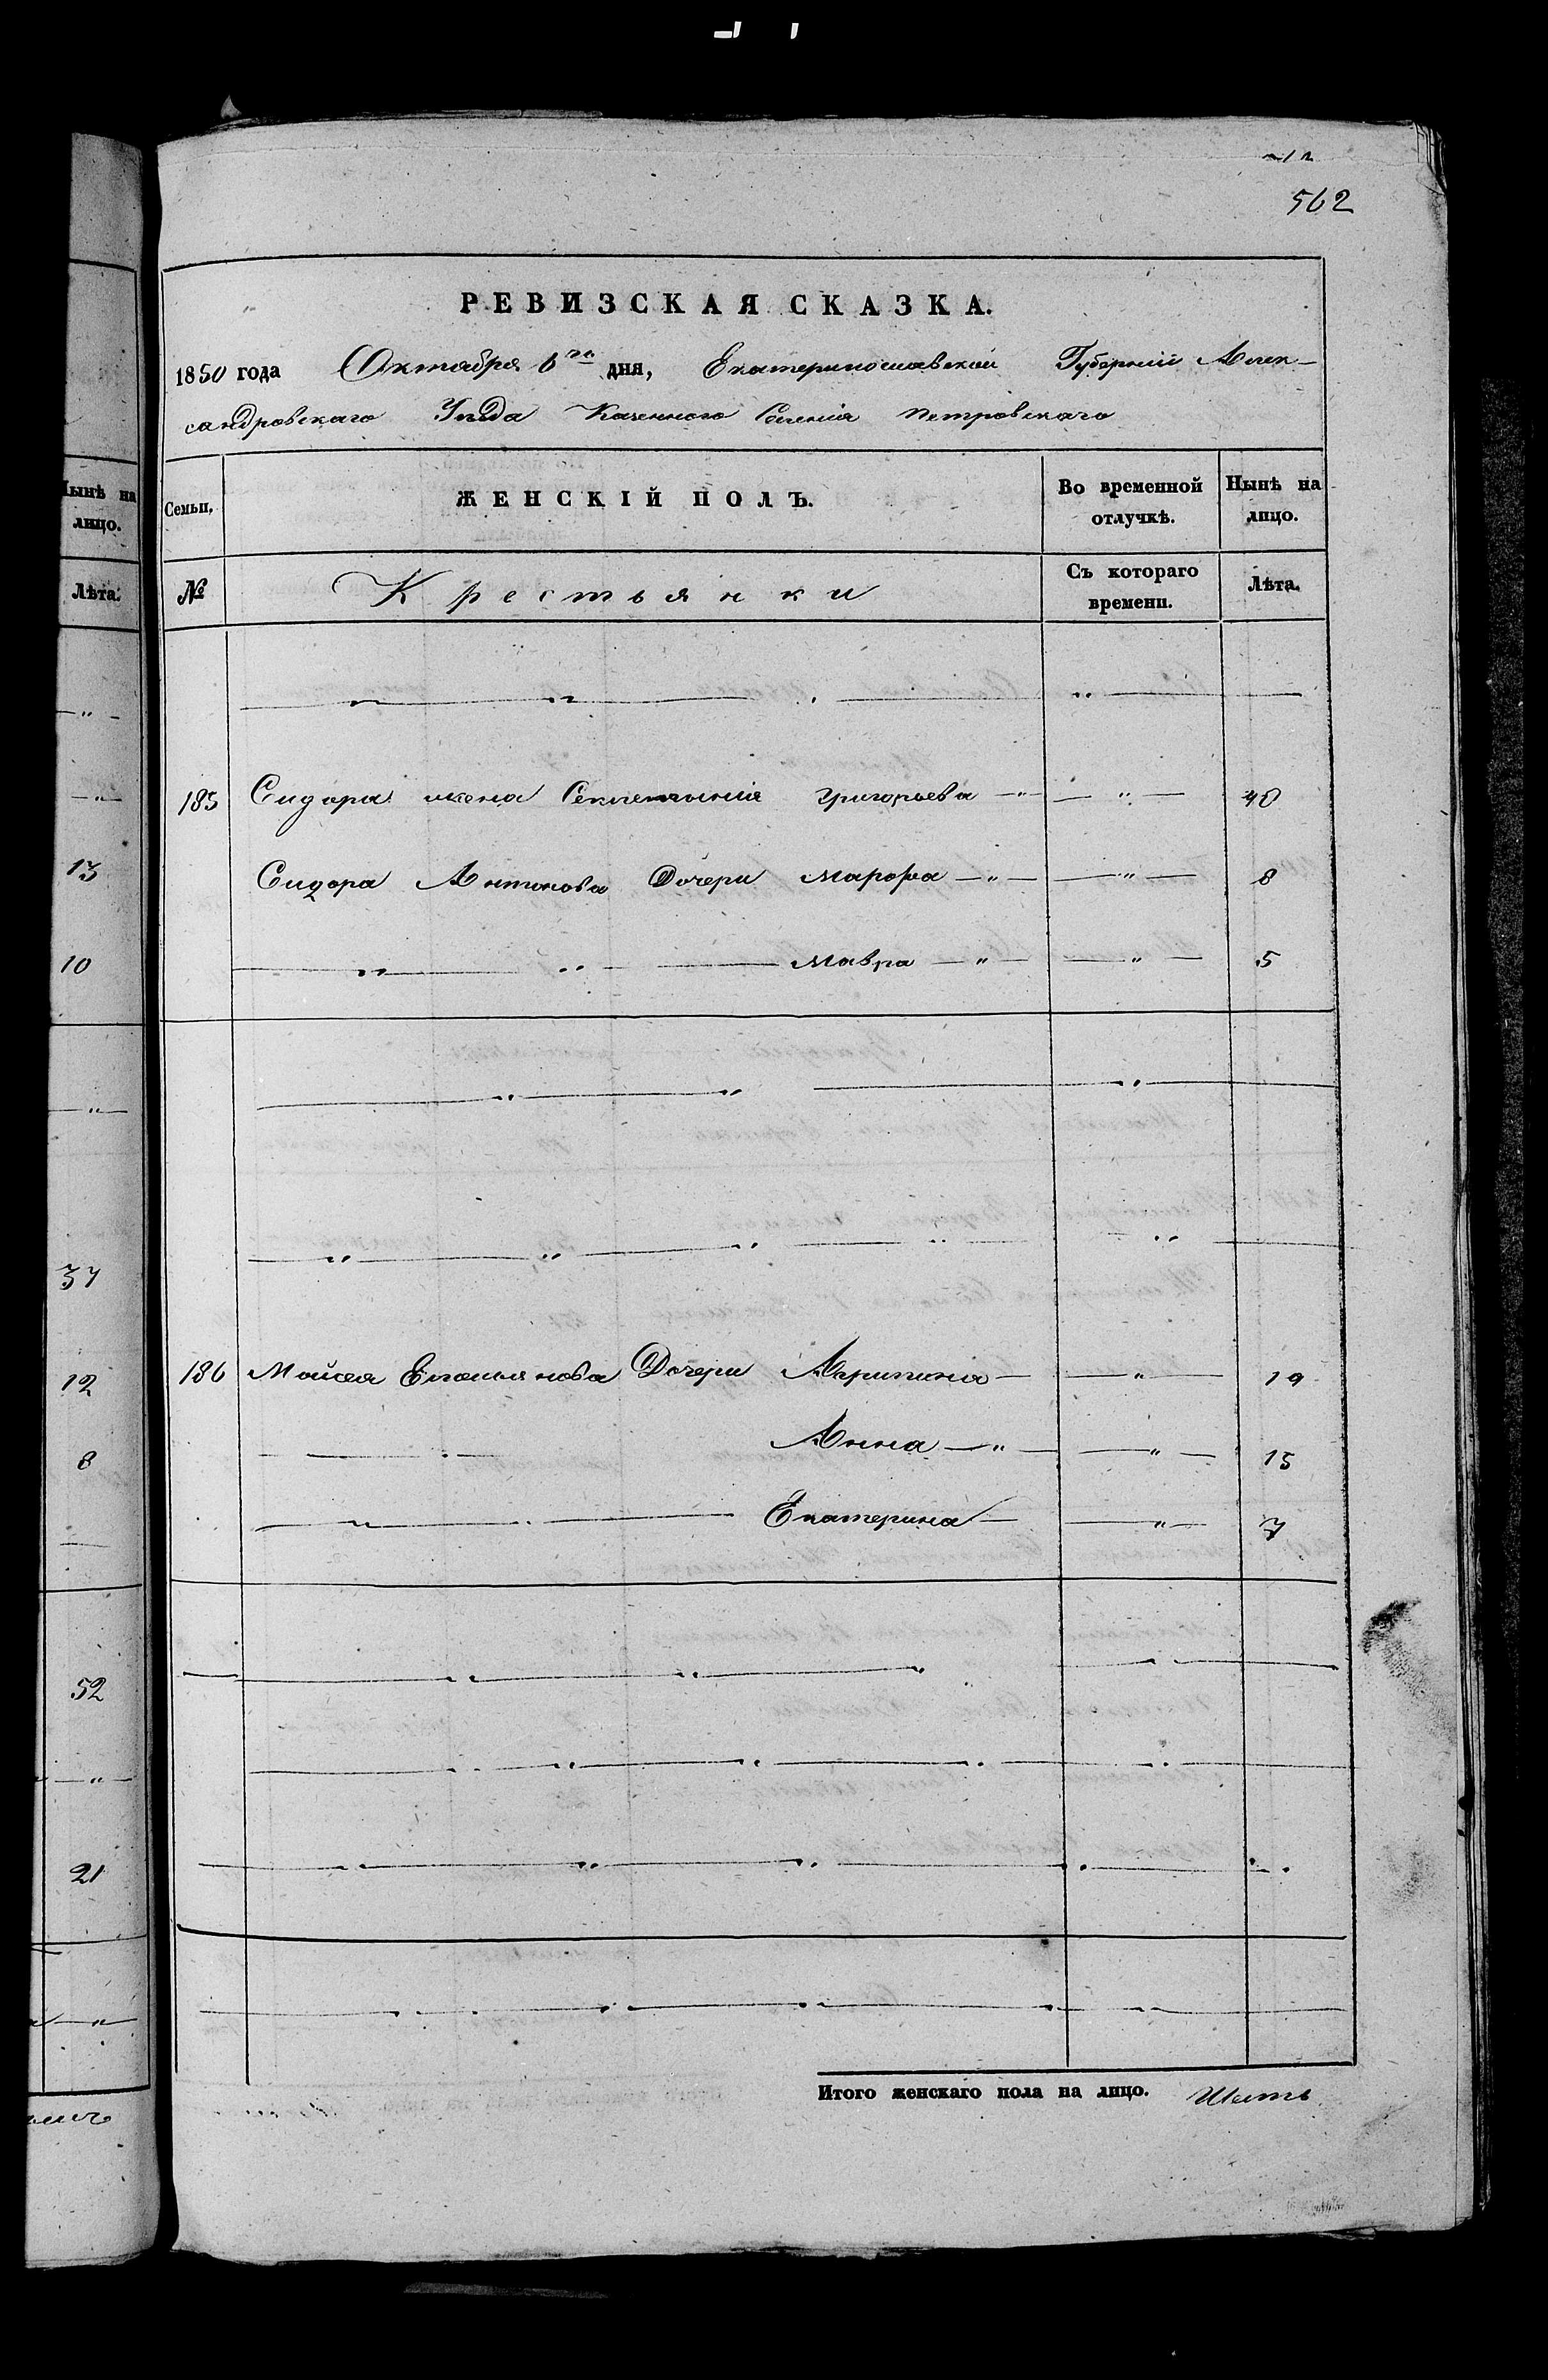 562
РЕВИЗСКАЯ СКАЗКА.
1850 года Октября 6го дня, Екатеринославской Губернии Алек-
сандровскаго Уезда Казенного Селения Петровскаго
Семьи, ЖЕНСКІЙ ПОЛЪ. Во временной отлучкѣ. Нынѣ на лицо.
№ Крестьянки Съ котораго времени. Лѣта.
185 Сидора жена Григорьева — " — — " — 40
Сидора Антонова Дочери Марфа — " — — " — 8
— " — " — Мавра — " — — " — 5
186 Мойсея Емельянова Дочери Агрипина — — " — 19
Анна — " — — " — 15
— " — Екатерина — — " — 7
Итого женскаго пола на лицо. Шесть
Нынѣ на
лицо.
Лѣта.
13
10
37
12
8
52
21